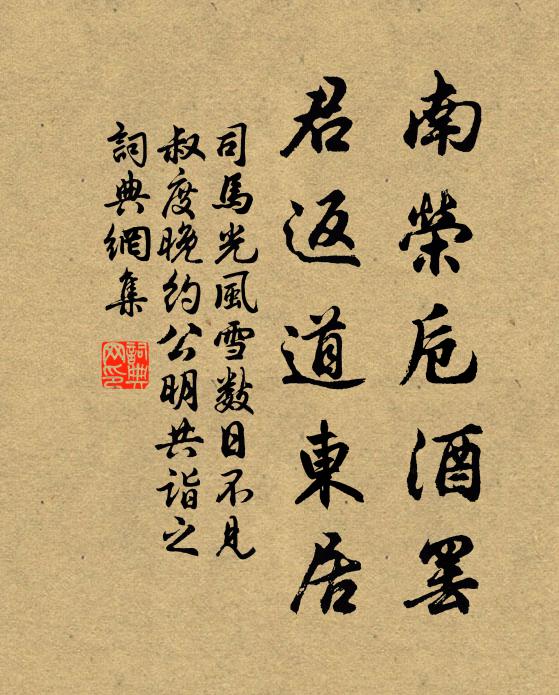 南榮卮酒罢
君返道東居
司馬光風雪数日不见
叔度晚约公明共诣之
詞典網集
詞典
网印